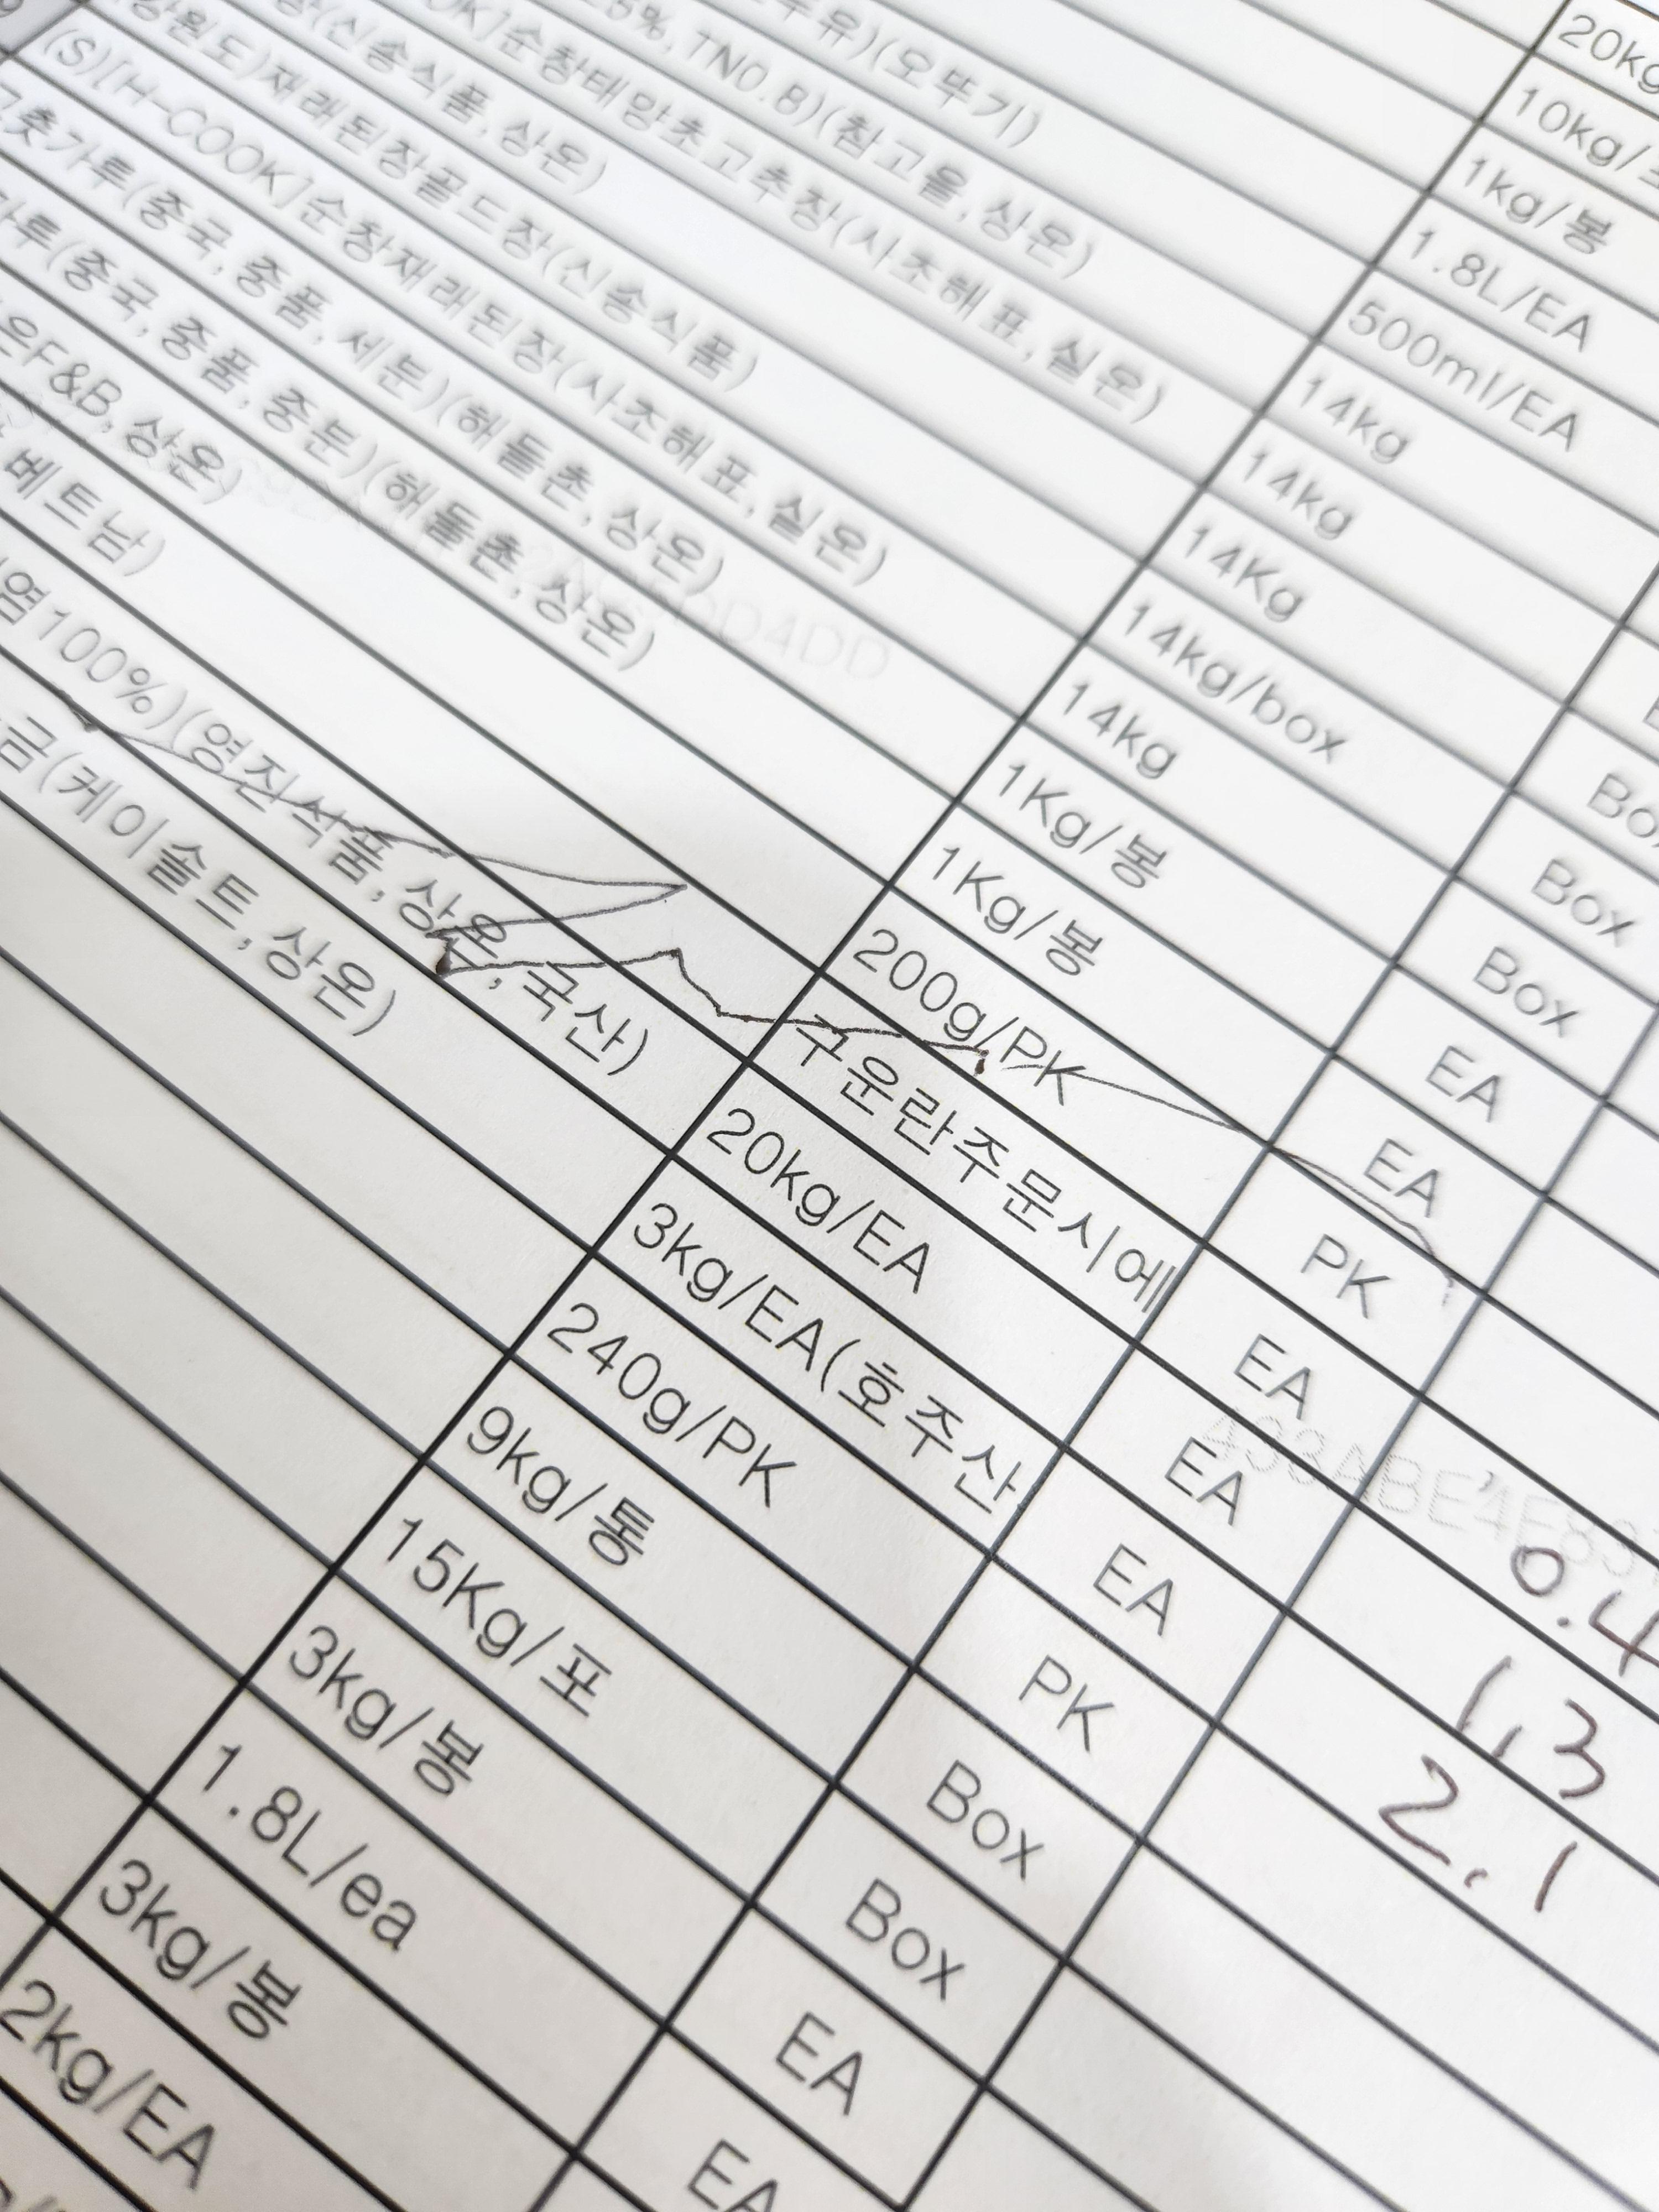 두유)(오뚜기)
5%,TN0.8)(참고을,상온)
OK]순창태양초고추장(사조해표,실온)
장(신송식품,상온)
강원도)재래된장골드장(신송식품)
(S)[H-COOK]순창재래된장(사조해표,실온)
고춧가루(중국,중품,세분)(해돌촌,상온)
가루(중국,중품,중분)(해돌촌,상온)
F&B,상온)
베트남)
염100%)(영진식품,상온,국산)
금(케이솔트,상온)
20kg
10kg/
1kg/봉
1.8L/EA
500ml/EA
14kg
14kg
14Kg
14kg/box
14kg
1Kg/봉
1Kg/봉
200g/PK
구운란주문시에
20kg/EA
3kg/EA(호주산
240g/PK
9kg/통
15Kg/포
3kg/봉
1.8L/ea
3kg/봉
2kg/EA
Box
Box
Box
EA
EA
PK
EA
EA
EA
PK
Box
Box
EA
EA
0.4
1.3
2.1